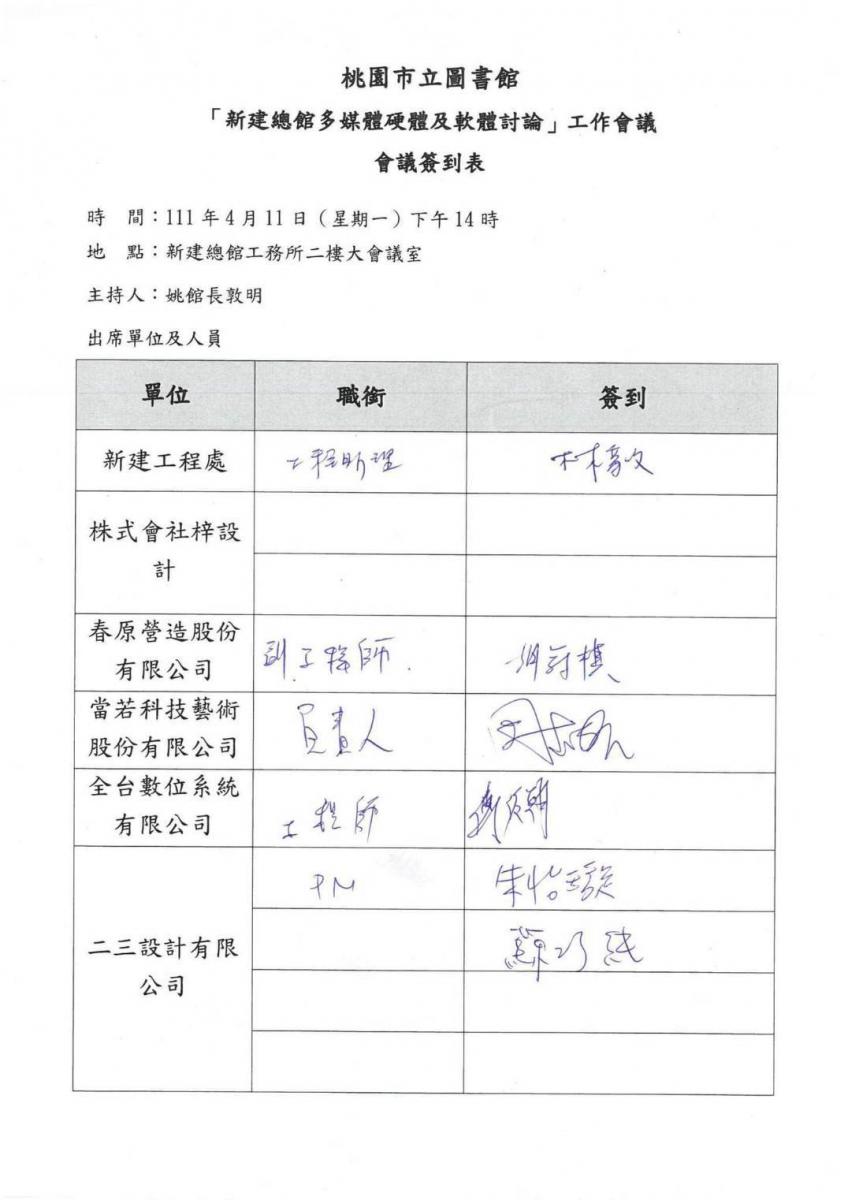 桃園市立圖書館
「新建總館多媒體硬體及軟體討論」工作會議
會議簽到表
時 間：111 年 4 月 11 日（星期一）下午 14 時
地 點：新建總館工務所二樓大會議室
主持人：姚館長敦明
出席單位及人員
單位 職銜 簽到
新建工程處 工程助理
株式會社梓設
計
春原營造股份
有限公司 副工程師
當若科技藝術
股份有限公司 負責人
全台數位系統
有限公司 工程師
PM 朱怡璇
二三設計有限
公司
蘇巧純